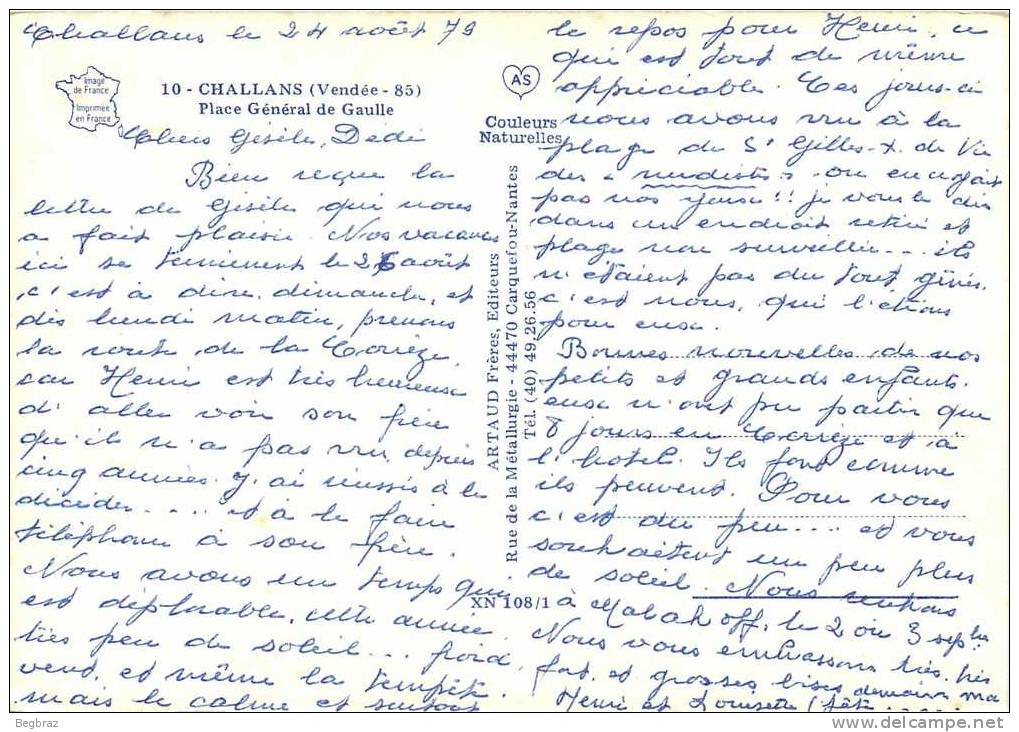 Challans le 24 août 79
Image
de France
Imprimée
en France
10 - CHALLANS (Vendée - 85)
Place Général de Gaulle
Chers Gisèle, Dédé
Bien reçue la
lettre de Gisèle qui nous
a fait plaisir. Nos vacances
ici se terminent le 26 août
c'est à dire dimanche, et
dès lundi matin, prenons
la route de la Corrèze,
car Henri est très heureux
d'aller voir son frère
qu'il n'a pas vu depuis
cinq années. J'ai réussis à le
décider .... et à le faire
téléphoner à son frère.
Nous avons un temps qui
est déplorable, cette année.
très peu de soleil... froid,
vent, et même la tempête.
mais le calme et surtout
AS
Couleurs
Naturelles
ARTAUD Frères, Editeurs
Rue de la Métallurgie - 44470 Carquefou-Nantes
Tél. (40) 49.26.56
XN 108/1
le repos pour Henri, ce
qui est tout de même
appréciable. Ces jours-ci
nous avons vu à la
plage de St Gilles-X. de Vie
des "nudistes" on en croyait
pas nos yeux!! je vous le dis
dans un endroit retiré et
plage non surveillée... ils
n'étaient pas du tout gênés.
c'est nous, qui l'étions
pour eux.
Bonnes nouvelles de nos
petits et grands enfants.
eux n'ont pu partir que
8 jours en Corrèze et à
l'hôtel. Ils font comme
ils peuvent. Pour vous
c'est du peu... et vous
souhaitent un peu plus
de soleil. Nous rentrons
à Malakoff, le 2 ou 3 septbre
Nous vous embrassons très, très
fort, et grosses bises
Henri et Lousette (fête demain ma
Begbraz
delcampe.net